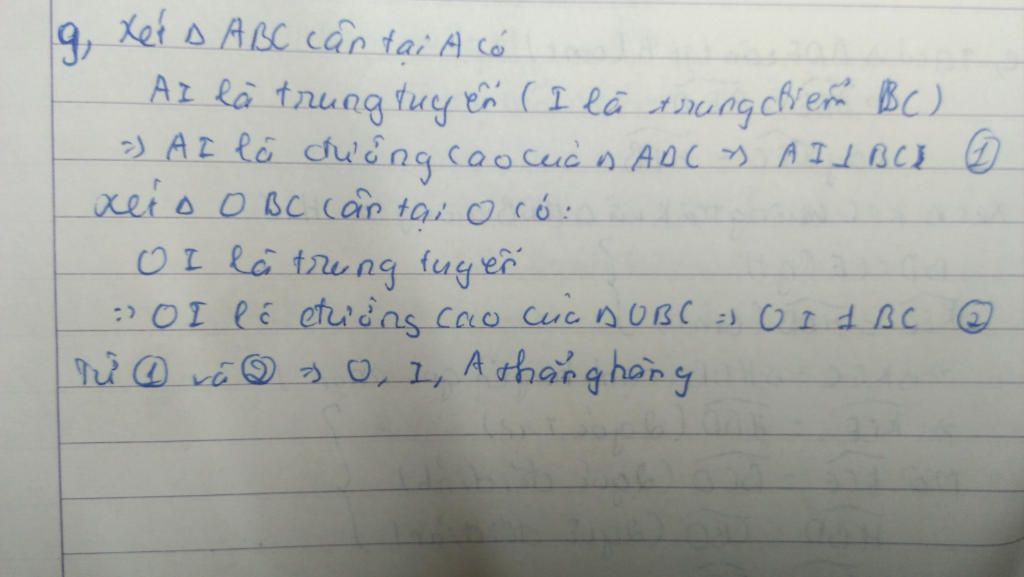 g, Xét Δ ABC cân tại A có
AI là trung tuyến ( I là trung điểm BC)
=> AI là đường cao của Δ ABC => AI ⊥ BC ①
Xét Δ OBC cân tại O có:
OI là trung tuyến
=> OI là đường cao của Δ OBC => OI ⊥ BC ②
Từ ① và ② => O, I, A thẳng hàng